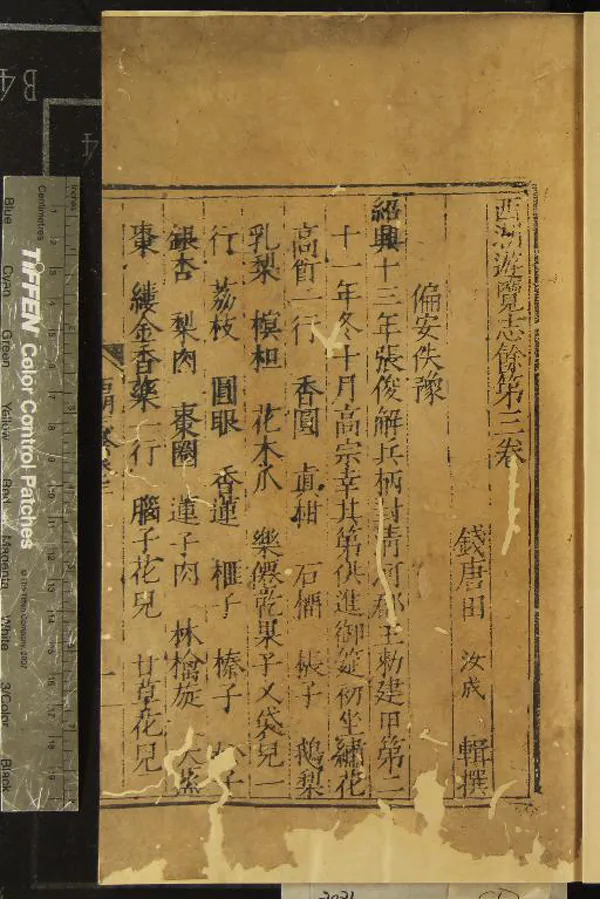 西湖遊覽志餘第三卷
錢唐田 汝成 輯撰
偏安佚豫
紹興十三年張俊解兵柄封清河郡王勅建甲第二
十一年冬十月高宗幸其第供進御筵初坐繡花
高飣一行 香圓 真柑 石榴 棖子 鵝梨
乳梨 榠柤 花木瓜 樂僊乾果子叉袋兒一
行 荔枝 圓眼 香蓮 榧子 榛子 子
銀杏 梨肉 棗圈 蓮子肉 林檎旋 大蒸
棗 縷金香藥一行 腦子花兒 甘草花兒
B4
4
Inches
Centimetres
TIFFEN Color Control Patches
© The Tiffen Company, 2007
Blue
Cyan
Green
Yellow
Red
Magenta
White
3/Color
Black